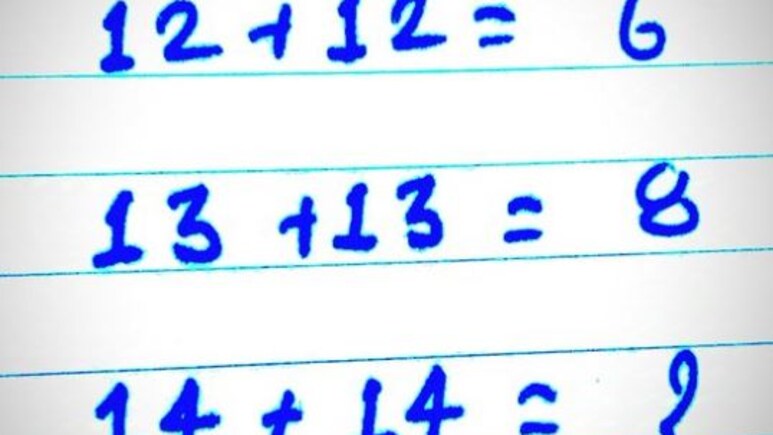 12 + 12 = 6
13 + 13 = 8
14 + 14 = ?